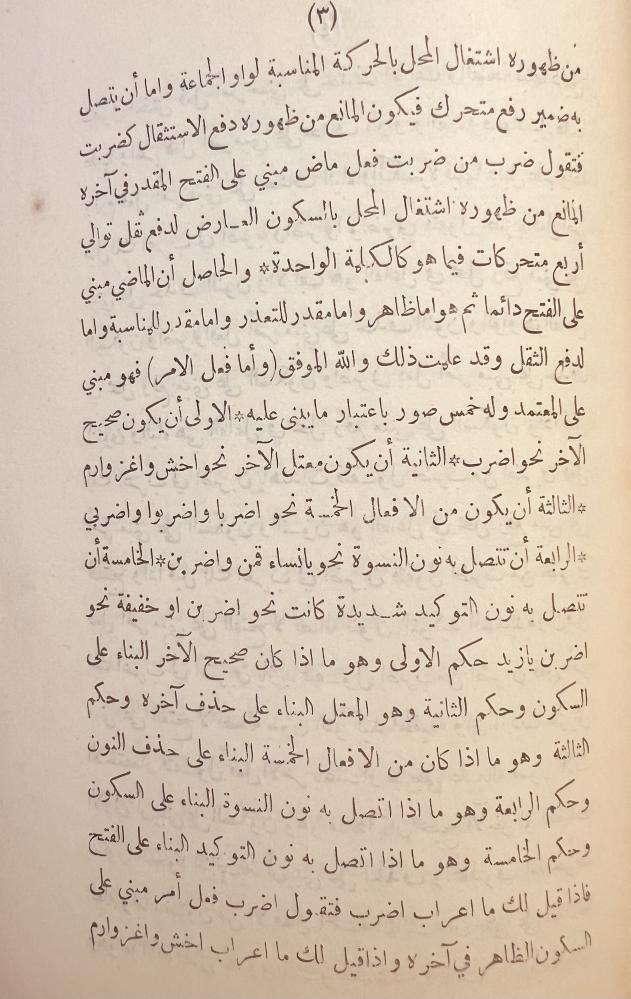 (٣)
من ظهوره اشتغال المحل بالحركة المناسبة لواو الجماعة واما أن يتصل
به ضمير رفع متحرك فيكون المانع من ظهوره دفع الاستثقال كضربت
فتقول ضرب من ضربت فعل ماض مبني على الفتح المقدر في آخره
المانع من ظهوره اشتغال المحل بالسكون العارض لدفع ثقل توالي
أربع متحركات فيما هو كالكلمة الواحدة* والحاصل أن الماضي مبني
على الفتح دائما ثم هو اما ظاهر واما مقدر للتعذر واما مقدر للمناسبة واما
لدفع الثقل وقد علمت ذلك والله الموفق (وأما فعل الامر) فهو مبني
على المعتمد وله خمس صور باعتبار ما يبنى عليه* الاولى أن يكون صحيح
الآخر نحو اضرب* الثانية أن يكون معتل الآخر نحو اخش واغز وارم
*الثالثة أن يكون من الافعال الخمسة نحو اضربا واضربوا واضربي
*الرابعة أن تتصل به نون النسوة نحو يا نساء قمن واضربن* الخامسة أن
تتصل به نون التوكيد شديدة كانت نحو اضربن او خفيفة نحو
اضربن يا زيد حكم الاولى وهو ما اذا كان صحيح الآخر البناء على
السكون وحكم الثانية وهو المعتل البناء على حذف آخره وحكم
الثالثة وهو ما اذا كان من الافعال الخمسة البناء على حذف النون
وحكم الرابعة وهو ما اذا اتصل به نون النسوة البناء على السكون
وحكم الخامسة وهو ما اذا اتصل به نون التوكيد البناء على الفتح
فاذا قيل لك ما اعراب اضرب فتقول اضرب فعل أمر مبني على
السكون الظاهر في آخره واذا قيل لك ما اعراب اخش واغز وارم